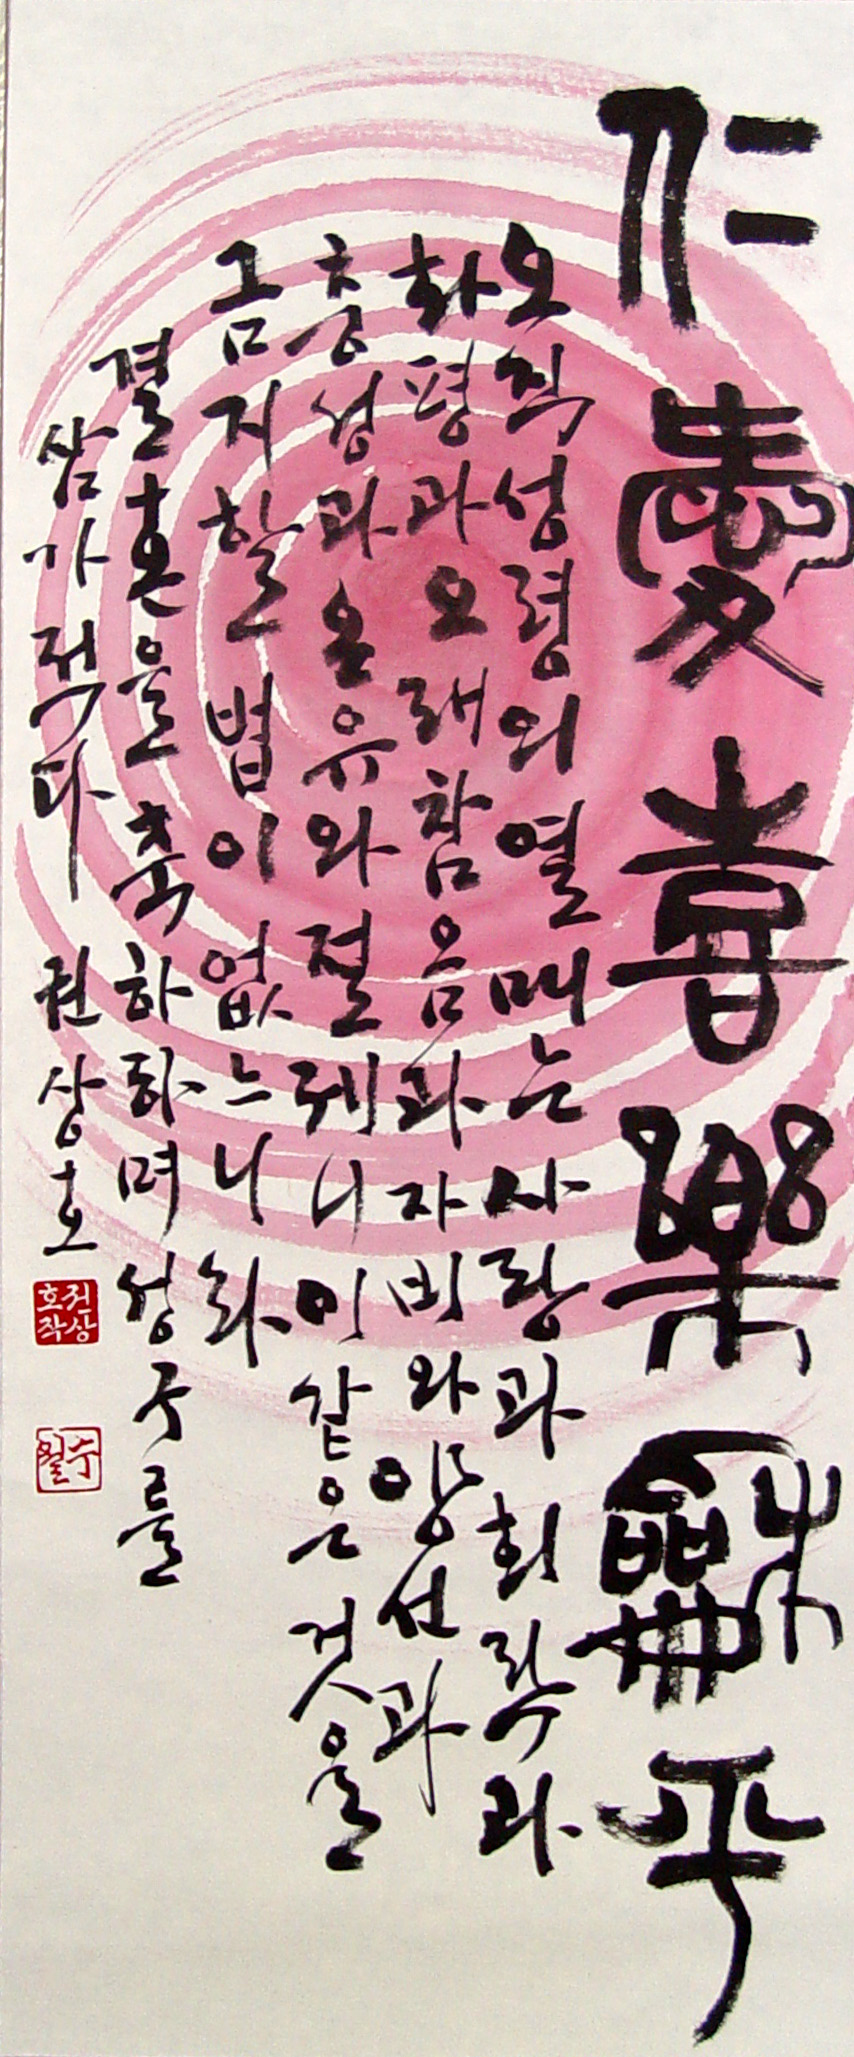 仁愛喜樂龢平
오직성령의열매는사랑과희락과
화평과오래참음과자비와양선과
충성과온유와절제니이같은것을
금지할법이없느니라
결혼을축하하며성구를
삼가적다 권상호
권상호작
수월